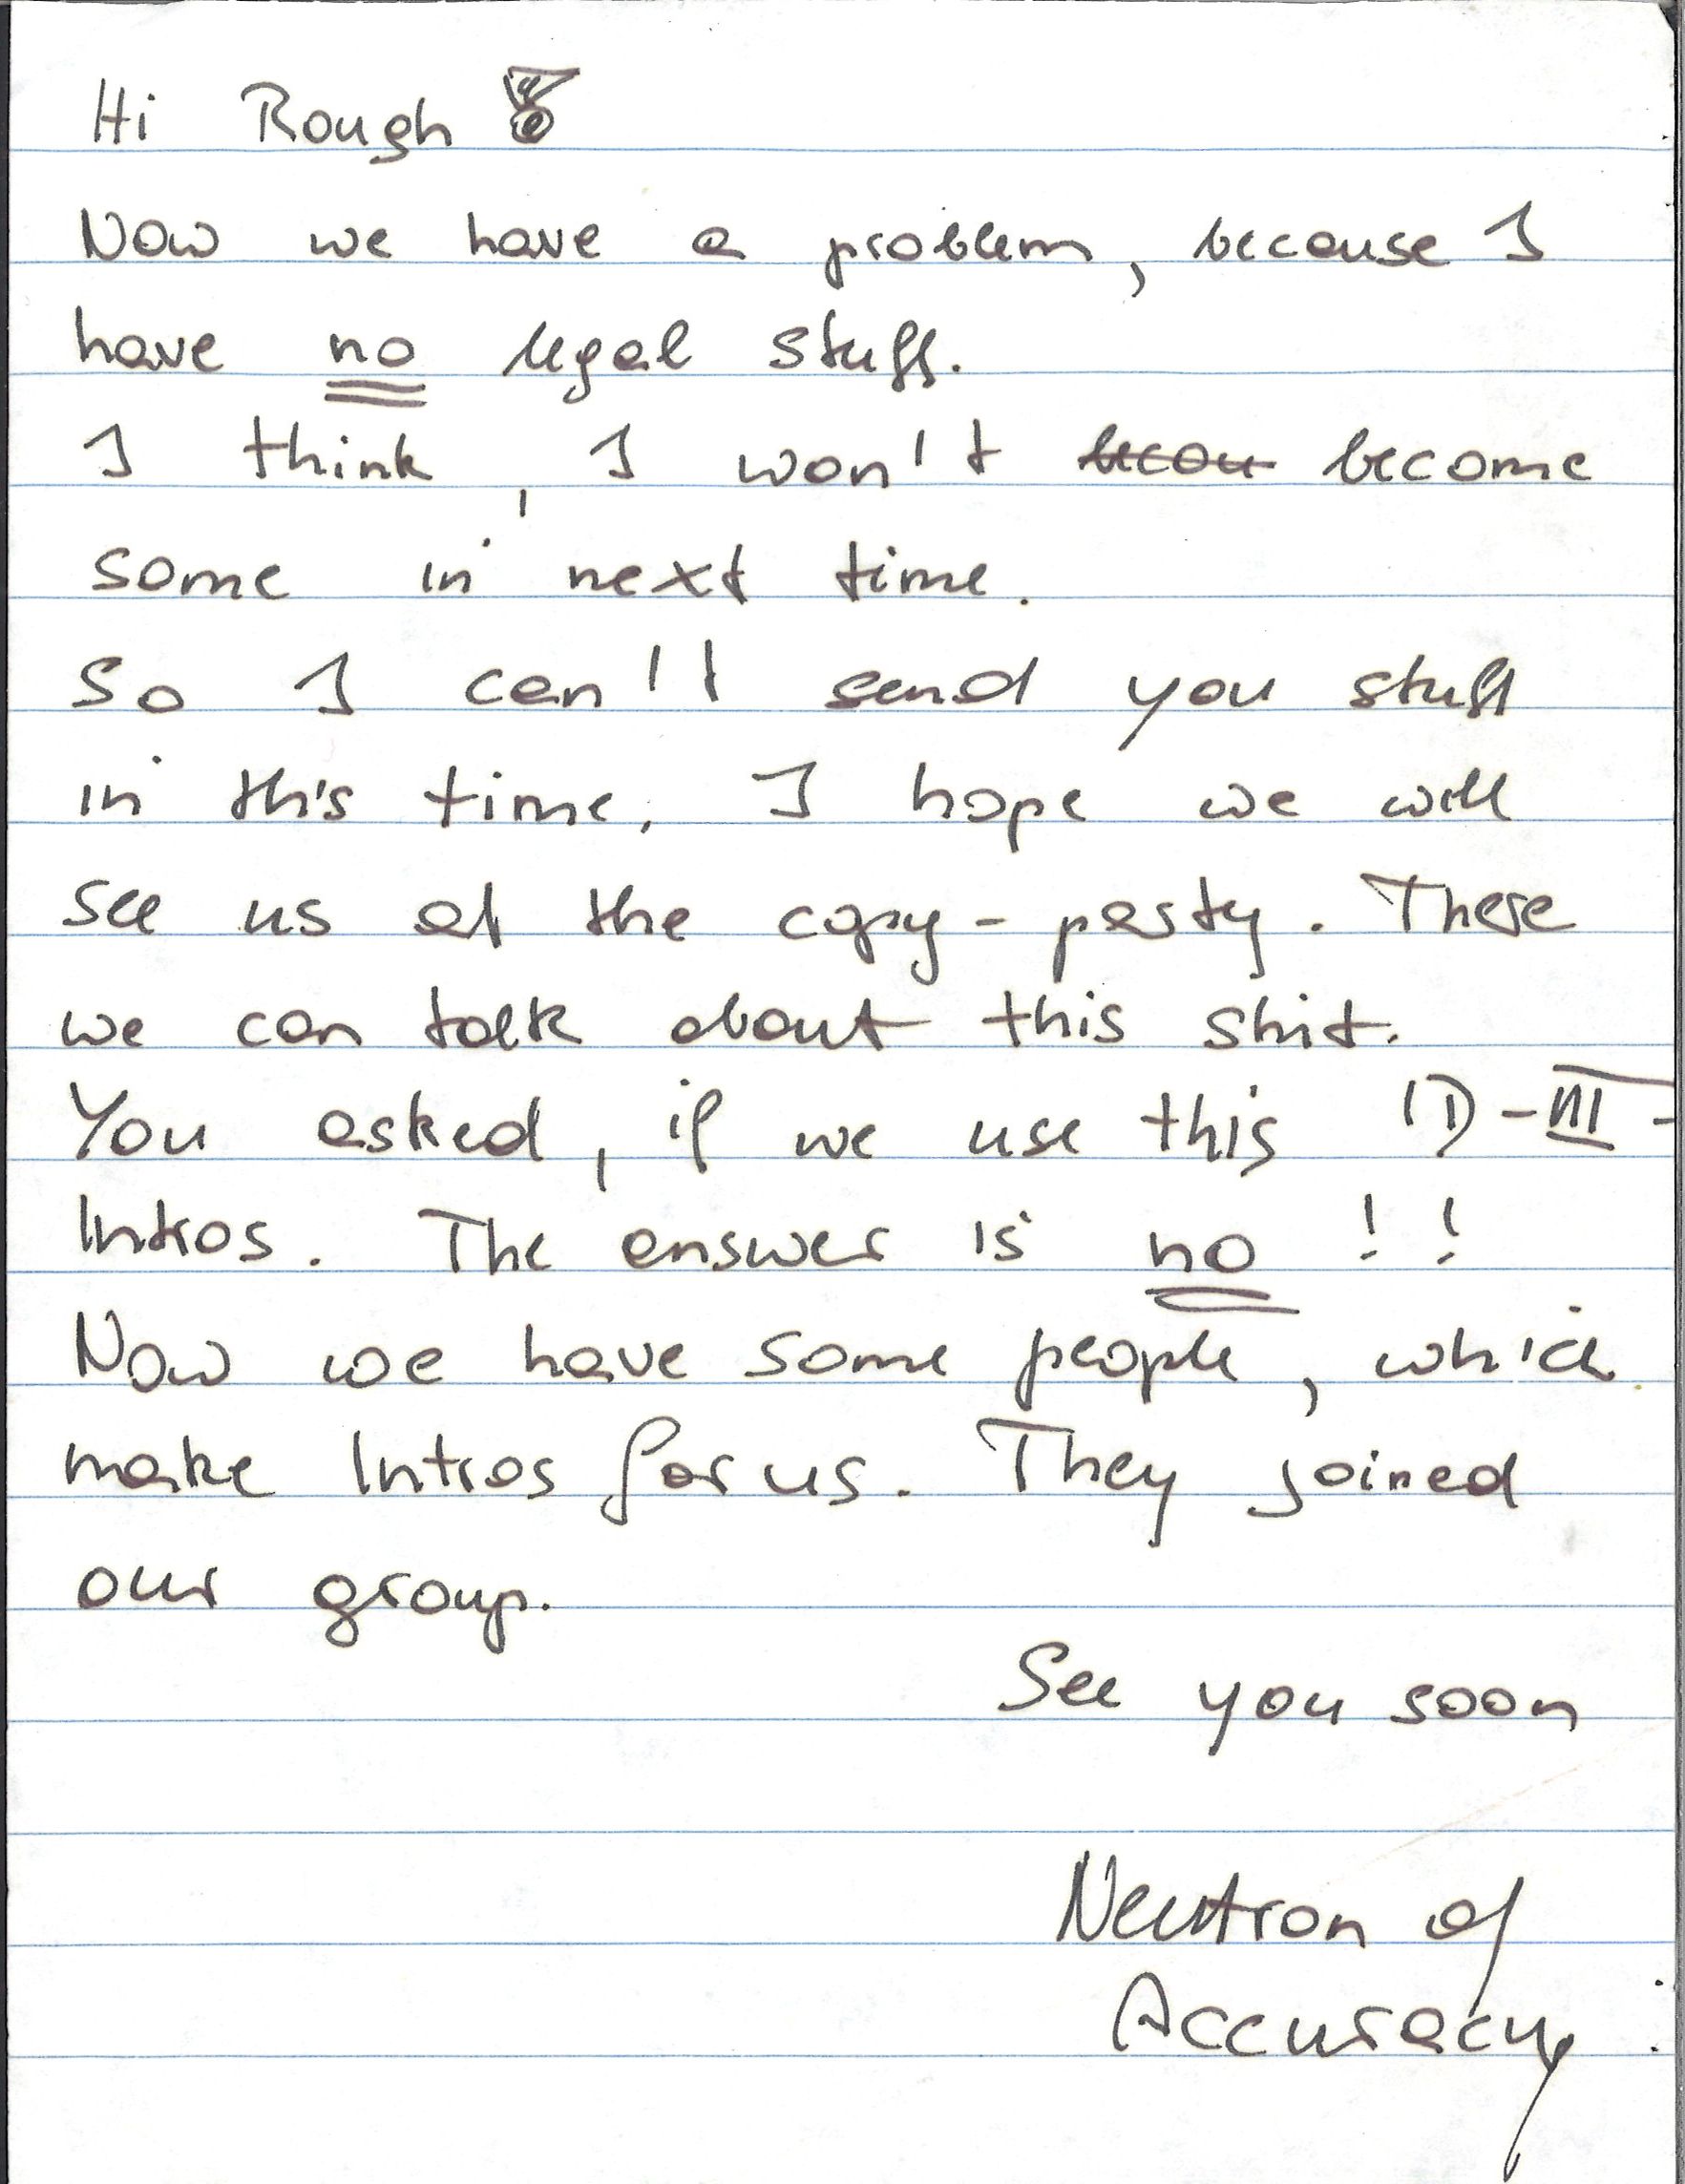 Hi Rough !
Now we have a problem, because I
have no legal stuff.
I think, I won't becou become
some in next time.
So I can't send you stuff
in this time. I hope we will
see us at the copy-party. There
we can talk about this shit.
You asked, if we use this ID-III-
Intros. The answer is no !!
Now we have some people, which
make Intros for us. They joined
our group.
See you soon
Neutron of
Accuracy